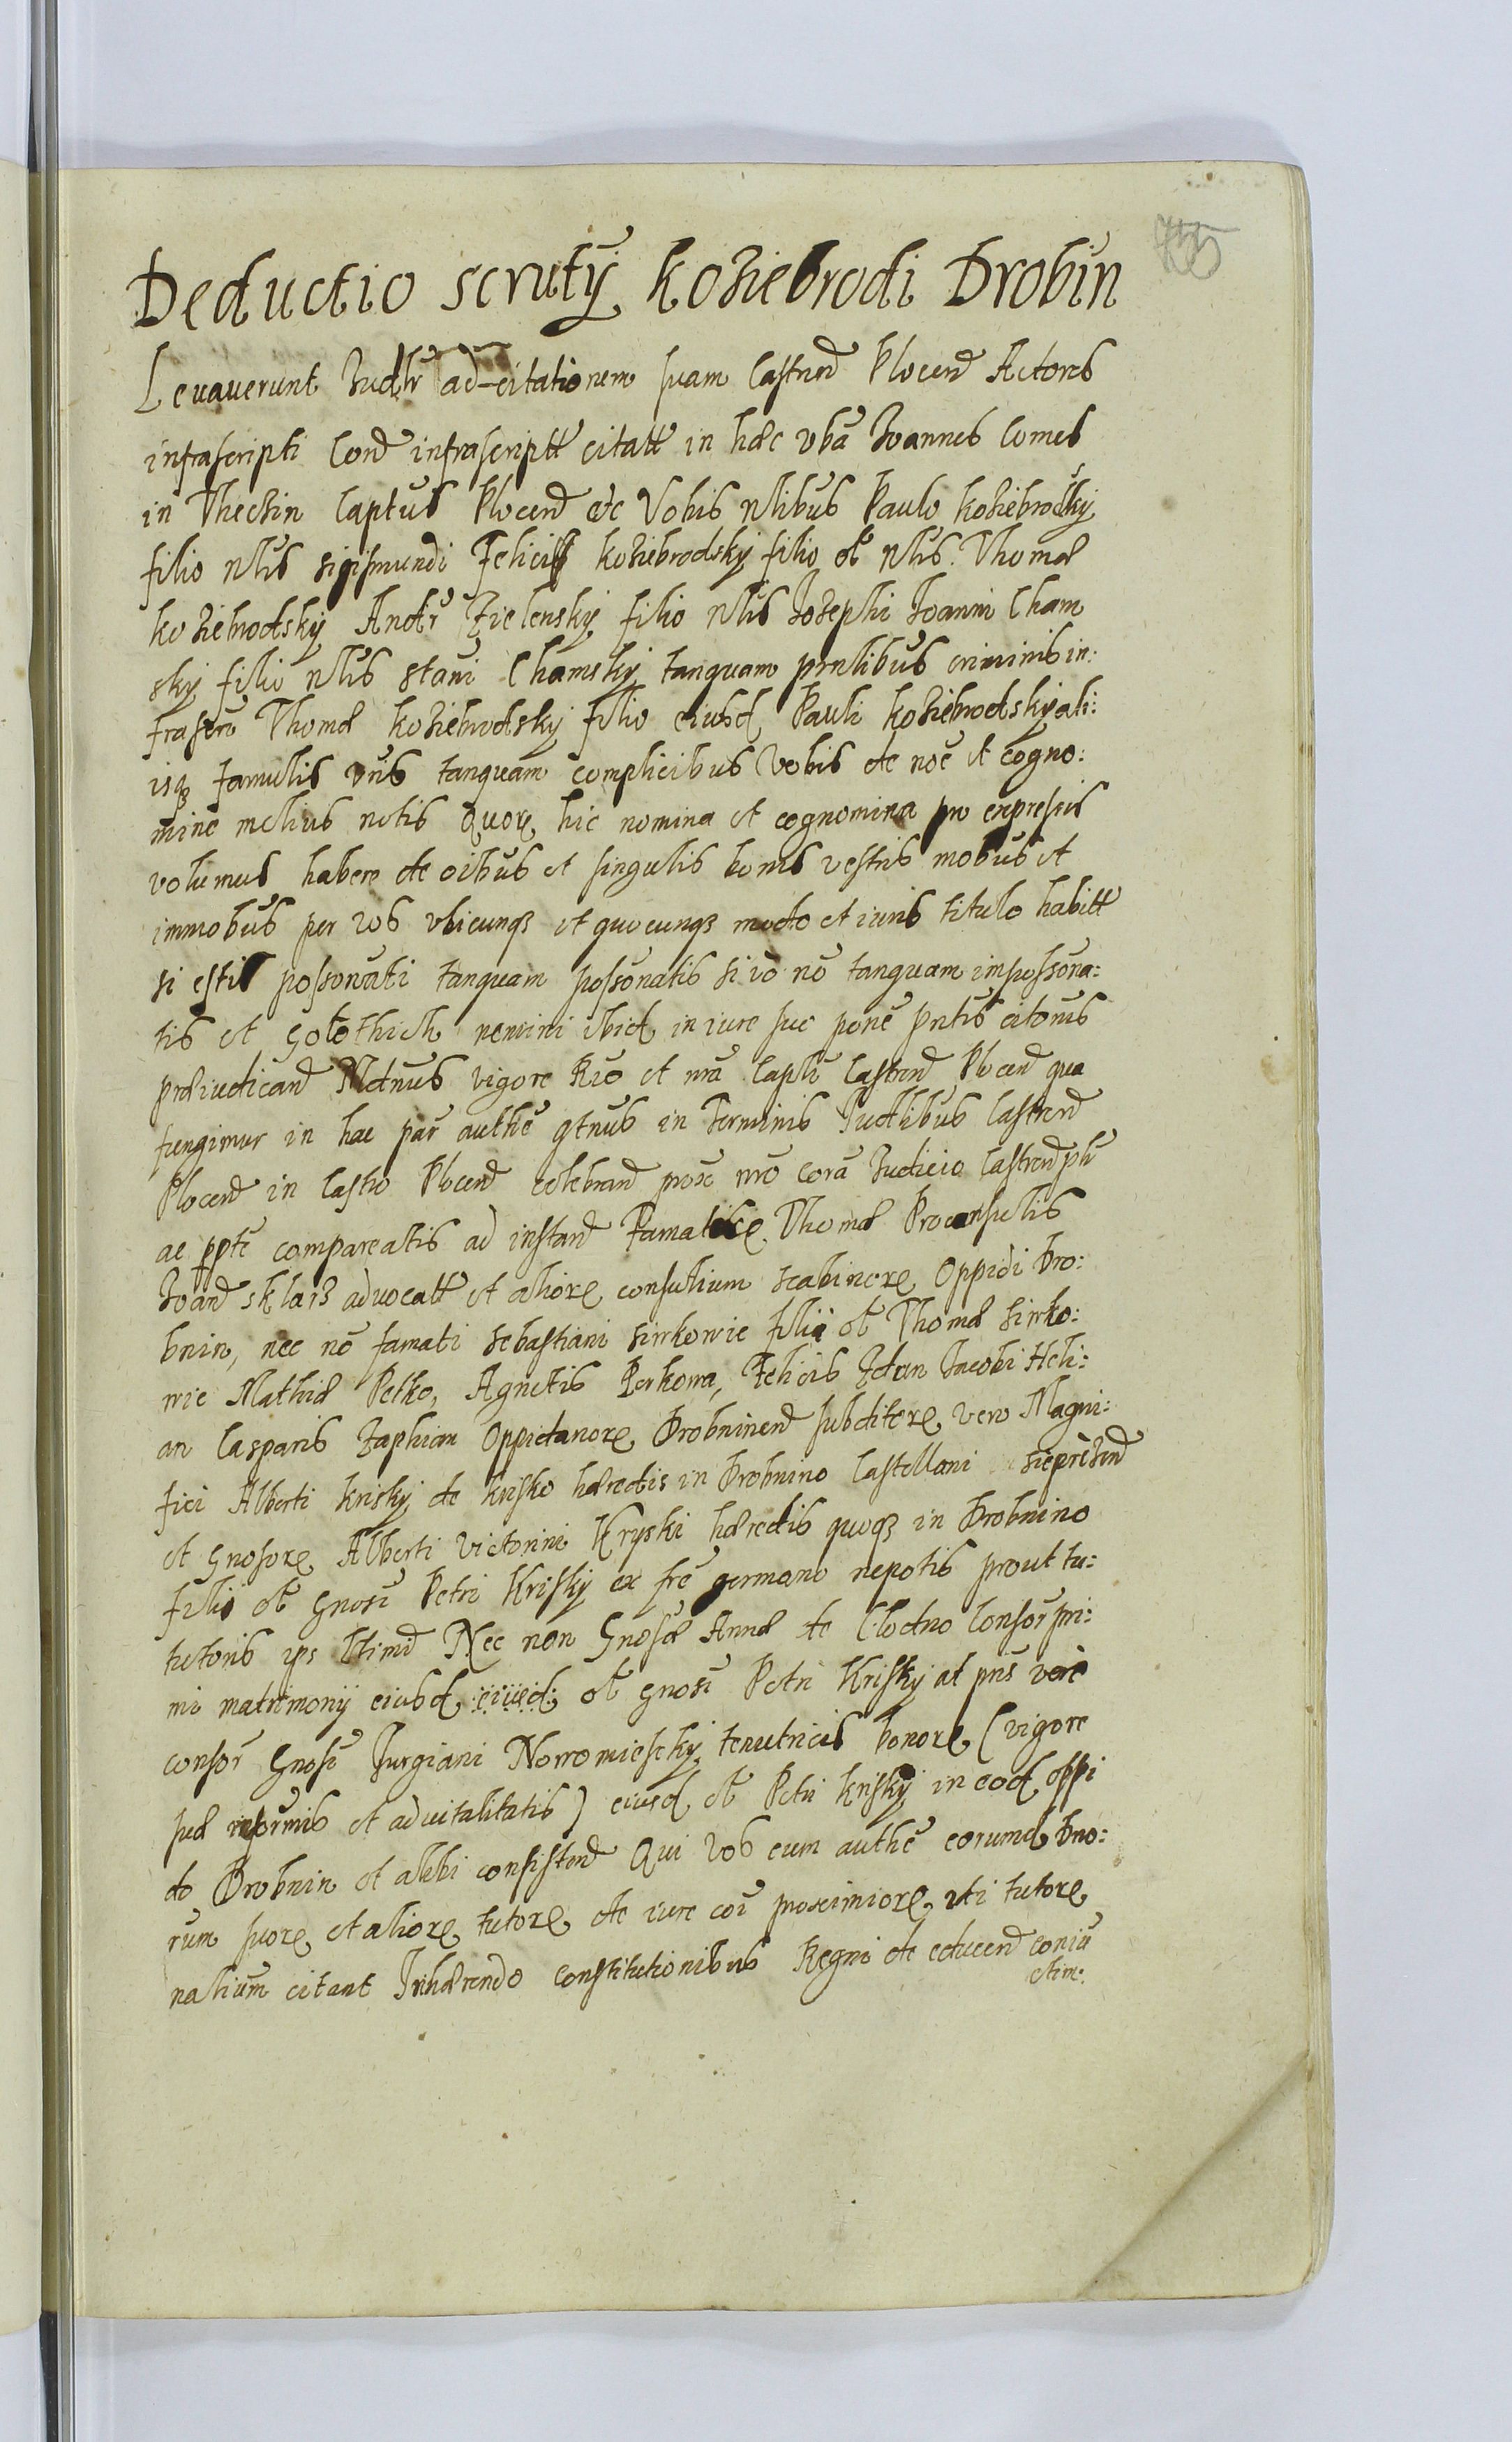 Deductio scrutÿ koziebrodi Drobin
Levaverunt Judlr ad citationem suam Castrend Plocend Actores
infrascripti Cond infrascriptt citatt in hæc vba Joannes Comes
in Thechin Captus Plocend etc Vobis Nlibus Paulo koziebrodskÿ
filio Nlis sigismundi Felicis koziebrodskÿ filio ol Nlis Thomæ
koziebrodskÿ Andr Zielenskÿ filio Nlis Josephi Joanni Cham
skÿ filio Nlis stani Chamskÿ tanquam prnlibus criminis in:
frascri Thomæ koziebrodskÿ filio eiusd Pauli koziebrodskÿ ali:
isq famulis vris tanquam complicibus Vobis de noē et cogno:
mine melius notis Quorꝫ hic nomina et cognomina pro expressis
volumus habere de oībus et singulis bonis vestris mobus et
immobus per vos vbicunqꝫ et quocunqꝫ modo et iuris titulo habitt
si estis possonati tanquam possonatis si vō nō tanquam impossona:
tis et Golothich nemini ibid in iure suc ponē pntis citonis
præiudicand Mdnus vigore Rīo et nrā Captu Castrend Plocend qua
fungimur in hac par authē qtnus in Terminis Judlibus Castrend
Plocend in Castro Plocend celebrand prox nrō corā Judicio Castrend plr
ac ppte compareatis ad instand Thomæ Proconsulis
Joand sklarz advocatt et aliorꝫ consulium scabinorꝫ Oppidi Dro:
bnin, nec nō famati sebastiani sirkowic filii ol Thomæ sirko:
wic Mathiæ Petko, Agnetis Perkowa, Felicis Zdun Jacobi Heli:
an Casparis Zaphian Oppidanorꝫ Drobninend subditorꝫ vero Magni:
fici Alberti kriskÿ de krisko hæredis in Drobnino Castellani sieprczend
et Gnosorꝫ Alberti Victorini Kryski hæredis quoqꝫ in Drobnino
filio ol Gnosi Petri Kriskÿ ex frē germano nepotis prout tu:
tutoris ips Nec non Gnosæ Annæ de Clodno Consor pri:
mi matrimonÿ eiusd eiusd: ol Gnosi Petri Kriskÿ at pns vero
consor Gnosi Jurgiani Nowomieskÿ tenutricis bonorꝫ (vigore
suæ reformis et advitalitatis) eiusd ol Petri kriskÿ in eod oppi
do Drobnin et alibi consistend Qui Vos cum authē eorumd Dno:
rum suorꝫ et aliorꝫ tutorꝫ de iure coi proximiorꝫ uti tutorꝫ
nalium citant Inhærendo constitutionibus Regni de educend coniu
ctim: